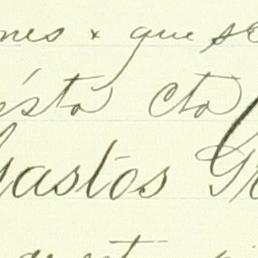 nes x que se
ésta cta
Gastos Gr